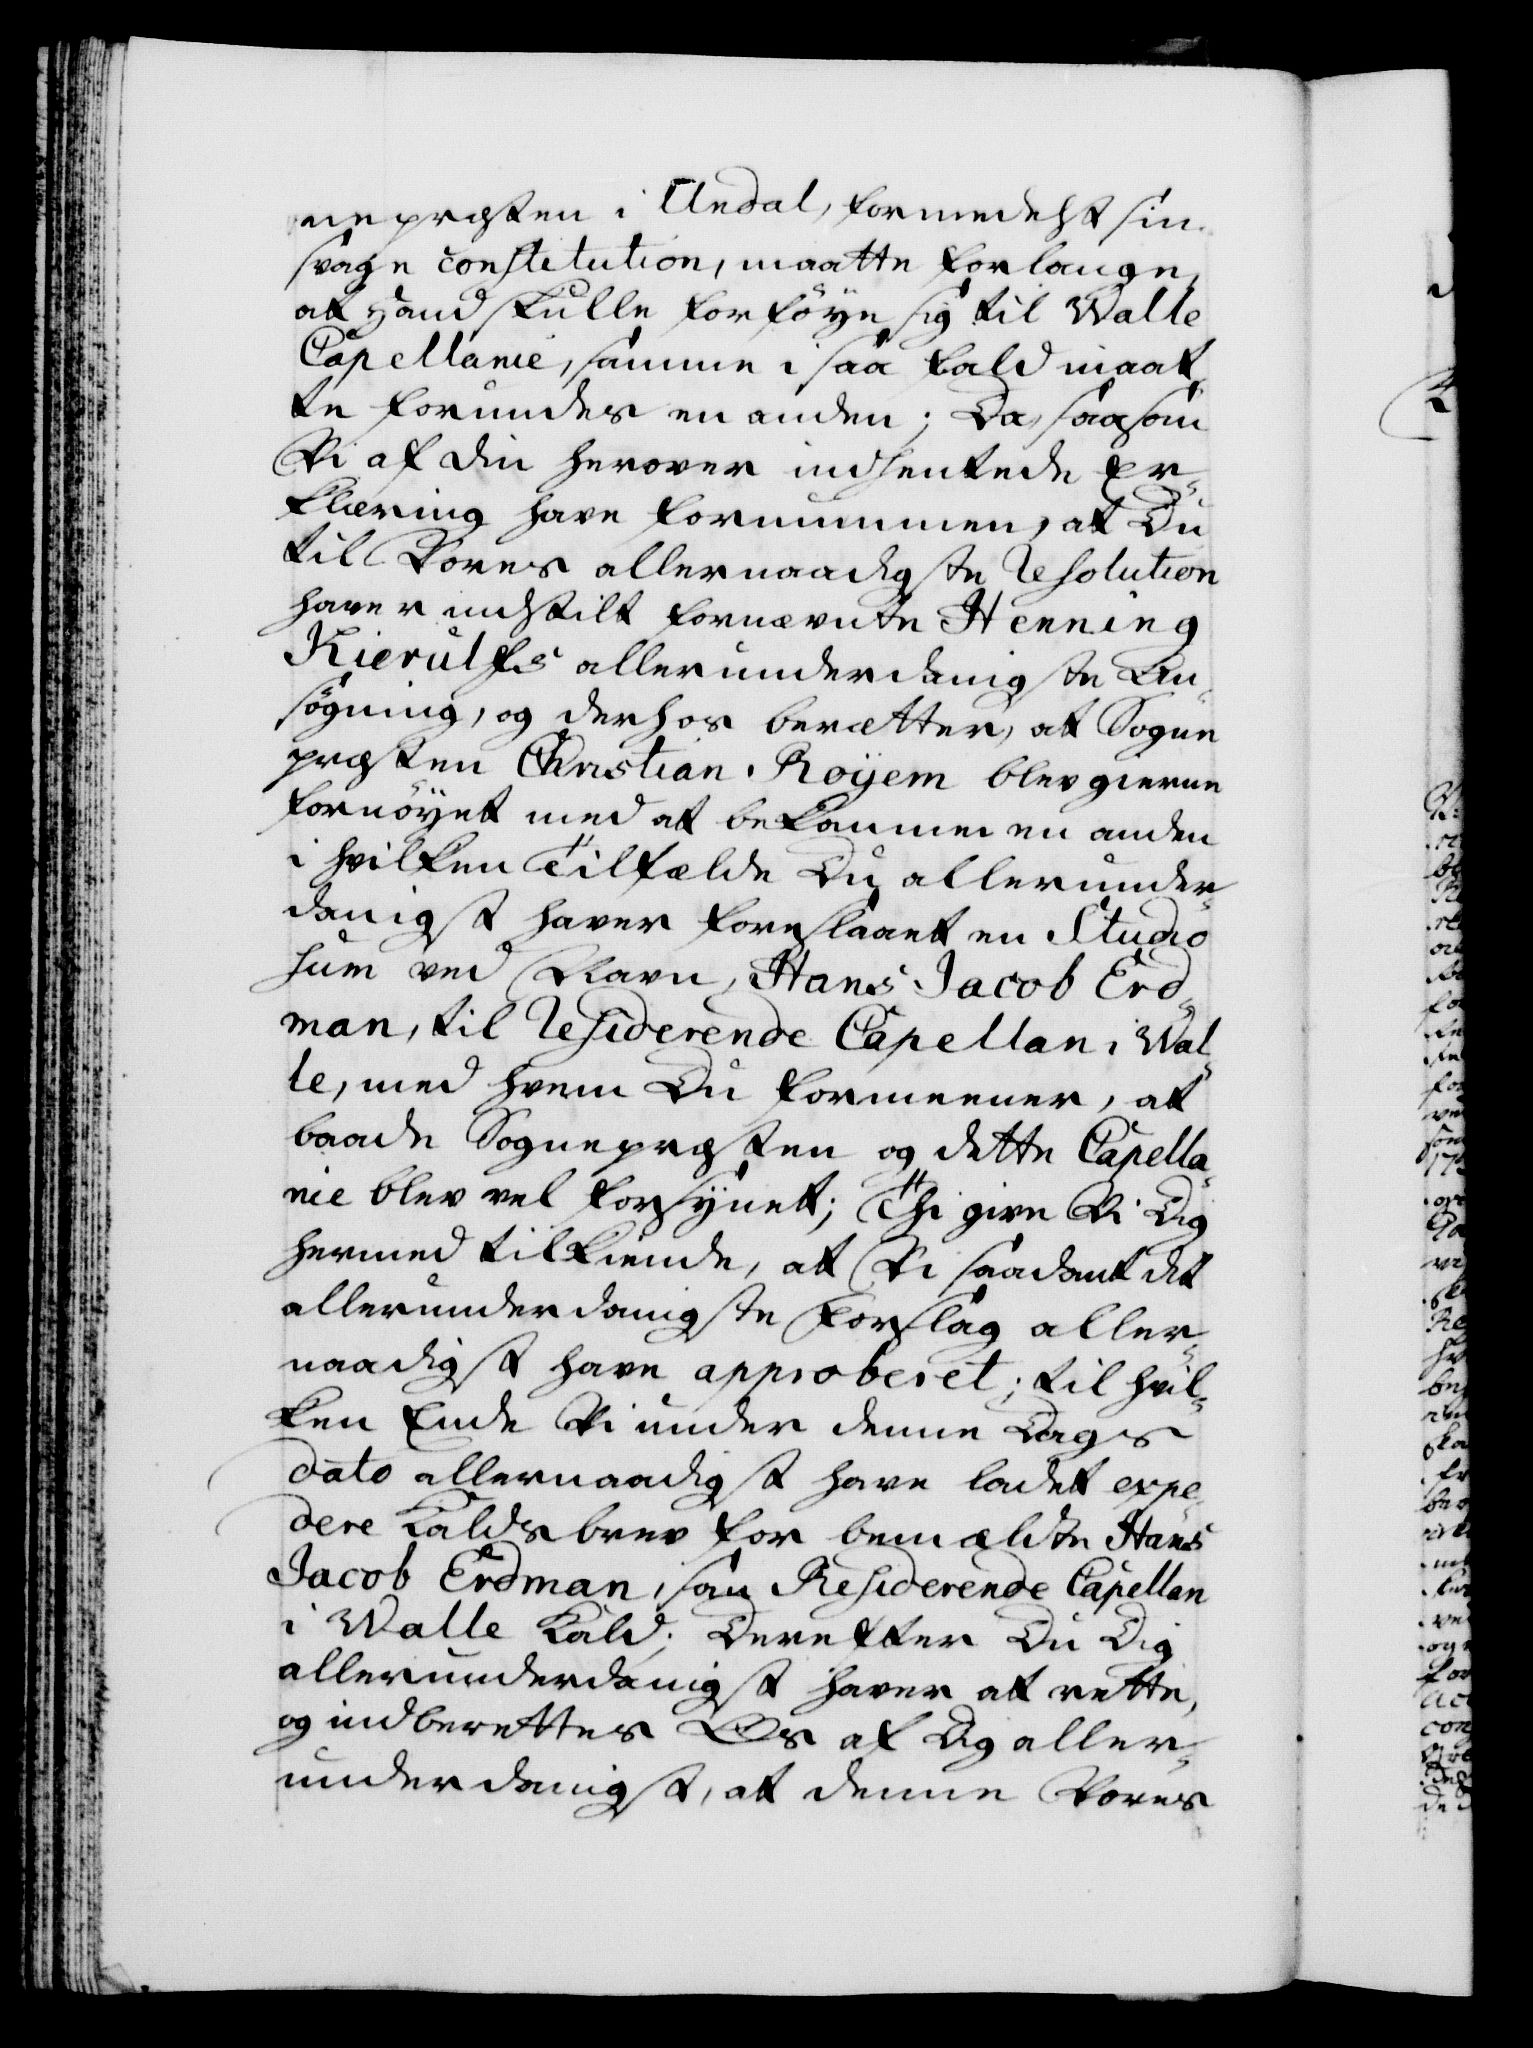 nepræsten i Undal, formedelst sin
svage constitution, maatte forlange,
at Hand skulle forföye sig til Walle
Capellanie, samme i saa fald maat
te forundes en anden; Da, saasom
Vi af din herover indhentede Er-
klæring have fornummen, at Du
til Vores allernaadigste Resolution
haver indstilt fornævnte Henning
Kierulfs allerunderdanigste An-
søgning, og derhos beretter, at Sogne
præsten Christian Röyem blev gierne
fornöyet med at bekomme en anden
i hvilken Tilfælde Du allerunder-
danigst haver foreslaaet en Studio
sum ved Navn, Hans Jacob Erd-
man, til Residerende Capellan i Wal-
le, med hvem Du formeener, at
baade Sognepræsten og dette Capella-
nie blev vel forsÿnet; Thi give Vi Dig
hermed tilkiende, at Vi saadant dit
allerunderdanigste Forslag aller-
naadigst have approberet; til hvil-
ken Ende Vi under denne Dags
dato allernaadigst have ladet expe-
dere Kaldsbrev for bemældte Hans
Jacob Erdman, som Residerende Capellan
i Walle Kald; Derefter Du Dig
allerunderdanigst haver at rette,
og indberettes Os af Dig aller-
underdanigst, at denne Vores